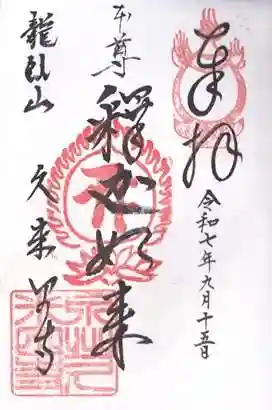 奉拝
令和七年九月十五日
本尊
釋迦如来
龍臥山